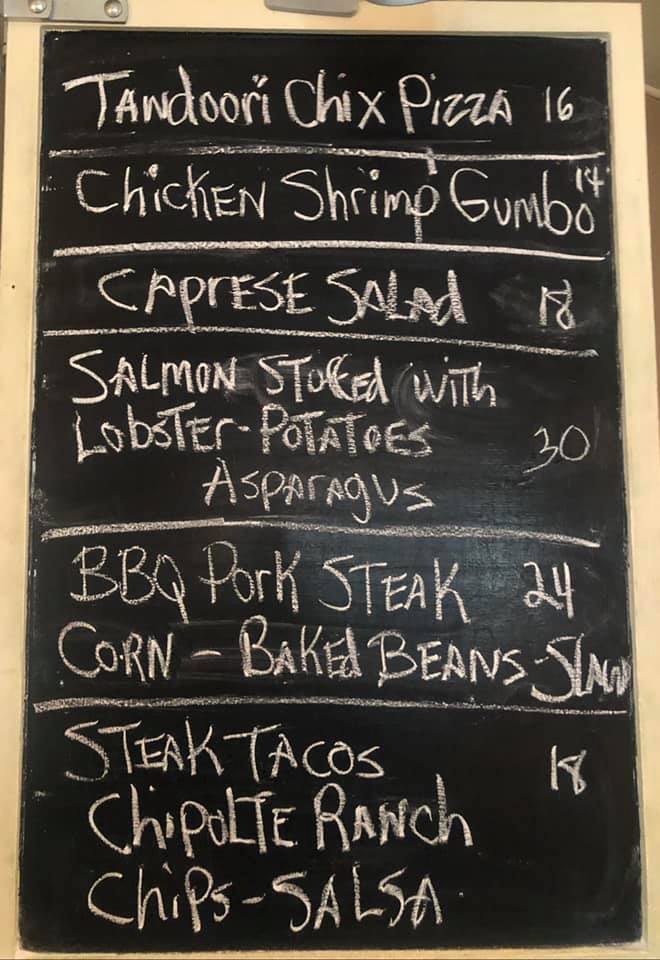 Tandoori Chix Pizza 16
Chicken Shrimp Gumbo 14
Caprese Salad 18
Salmon Stuffed with
Lobster-Potatoes 30
Asparagus
BBQ Pork Steak 24
Corn - Baked Beans - Slaw
Steak Tacos 18
Chipolte Ranch
Chips - Salsa